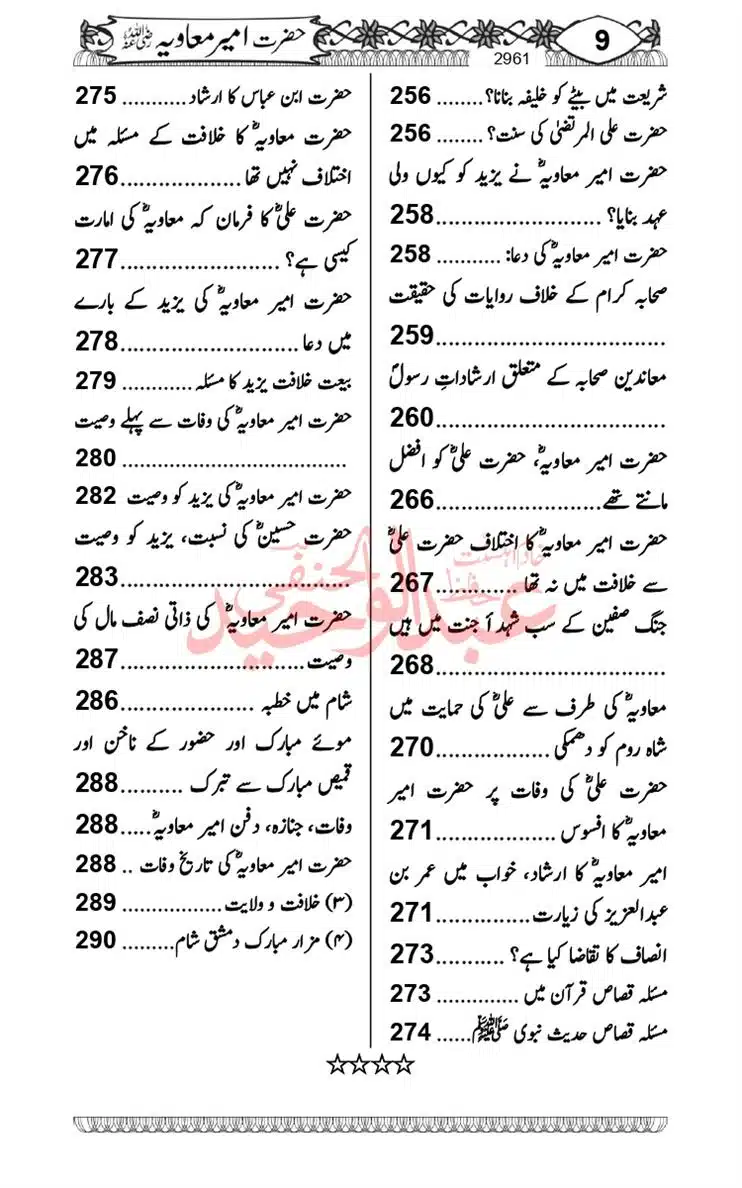 حضرت امیر معاویہ رضی اللہ عنہ
9
2961
شریعت میں بیٹے کو خلیفہ بنانا؟........ 256
حضرت علی المرتضیٰ کی سنت؟ ........ 256
حضرت امیر معاویہؓ نے یزید کو کیوں ولی
عہد بنایا؟ ..........................258
حضرت امیر معاویہؓ کی دعا: ........... 258
صحابہ کرام کے خلاف روایات کی حقیقت
....................................259
معاندین صحابہ کے متعلق ارشاداتِ رسولؐ
....................................260
حضرت امیر معاویہؓ، حضرت علیؓ کو افضل
مانتے تھے..........................266
حضرت امیر معاویہؓ کا اختلاف حضرت علیؓ
سے خلافت میں نہ تھا .............267
جنگ صفین کے سب شہدأ جنت میں ہیں
....................................268
معاویہؓ کی طرف سے علیؓ کی حمایت میں
شاہ روم کو دھمکی..................270
حضرت علیؓ کی وفات پر حضرت امیر
معاویہؓ کا افسوس ...................271
امیر معاویہؓ کا ارشاد، خواب میں عمر بن
عبدالعزیز کی زیارت...............271
انصاف کا تقاضا کیا ہے؟ ...........273
مسئلہ قصاص قرآن میں .............. 273
مسئلہ قصاص حدیث نبوی ﷺ...... 274
حضرت ابن عباس کا ارشاد........... 275
حضرت معاویہؓ کا خلافت کے مسئلہ میں
اختلاف نہیں تھا ...................276
حضرت علیؓ کا فرمان کہ معاویہؓ کی امارت
کیسی ہے؟ .........................277
حضرت امیر معاویہؓ کی یزید کے بارے
میں دعا ............................278
بیعت خلافت یزید کا مسئلہ............ 279
حضرت امیر معاویہؓ کی وفات سے پہلے وصیت
................................... 280
حضرت امیر معاویہؓ کی یزید کو وصیت 282
حضرت حسینؓ کی نسبت، یزید کو وصیت
....................................283
حضرت امیر معاویہؓ کی ذاتی نصف مال کی
وصیت.............................287
شام میں خطبہ .....................286
موئے مبارک اور حضور کے ناخن اور
قمیص مبارک سے تبرک ..........288
وفات، جنازہ، دفن امیر معاویہؓ.....288
حضرت امیر معاویہؓ کی تاریخ وفات .. 288
(۳) خلافت و ولایت................ 289
(۴) مزار مبارک دمشق شام......... 290
خادم اہلسنت
حافظ عبدالوحید الحنفی
☆☆☆☆